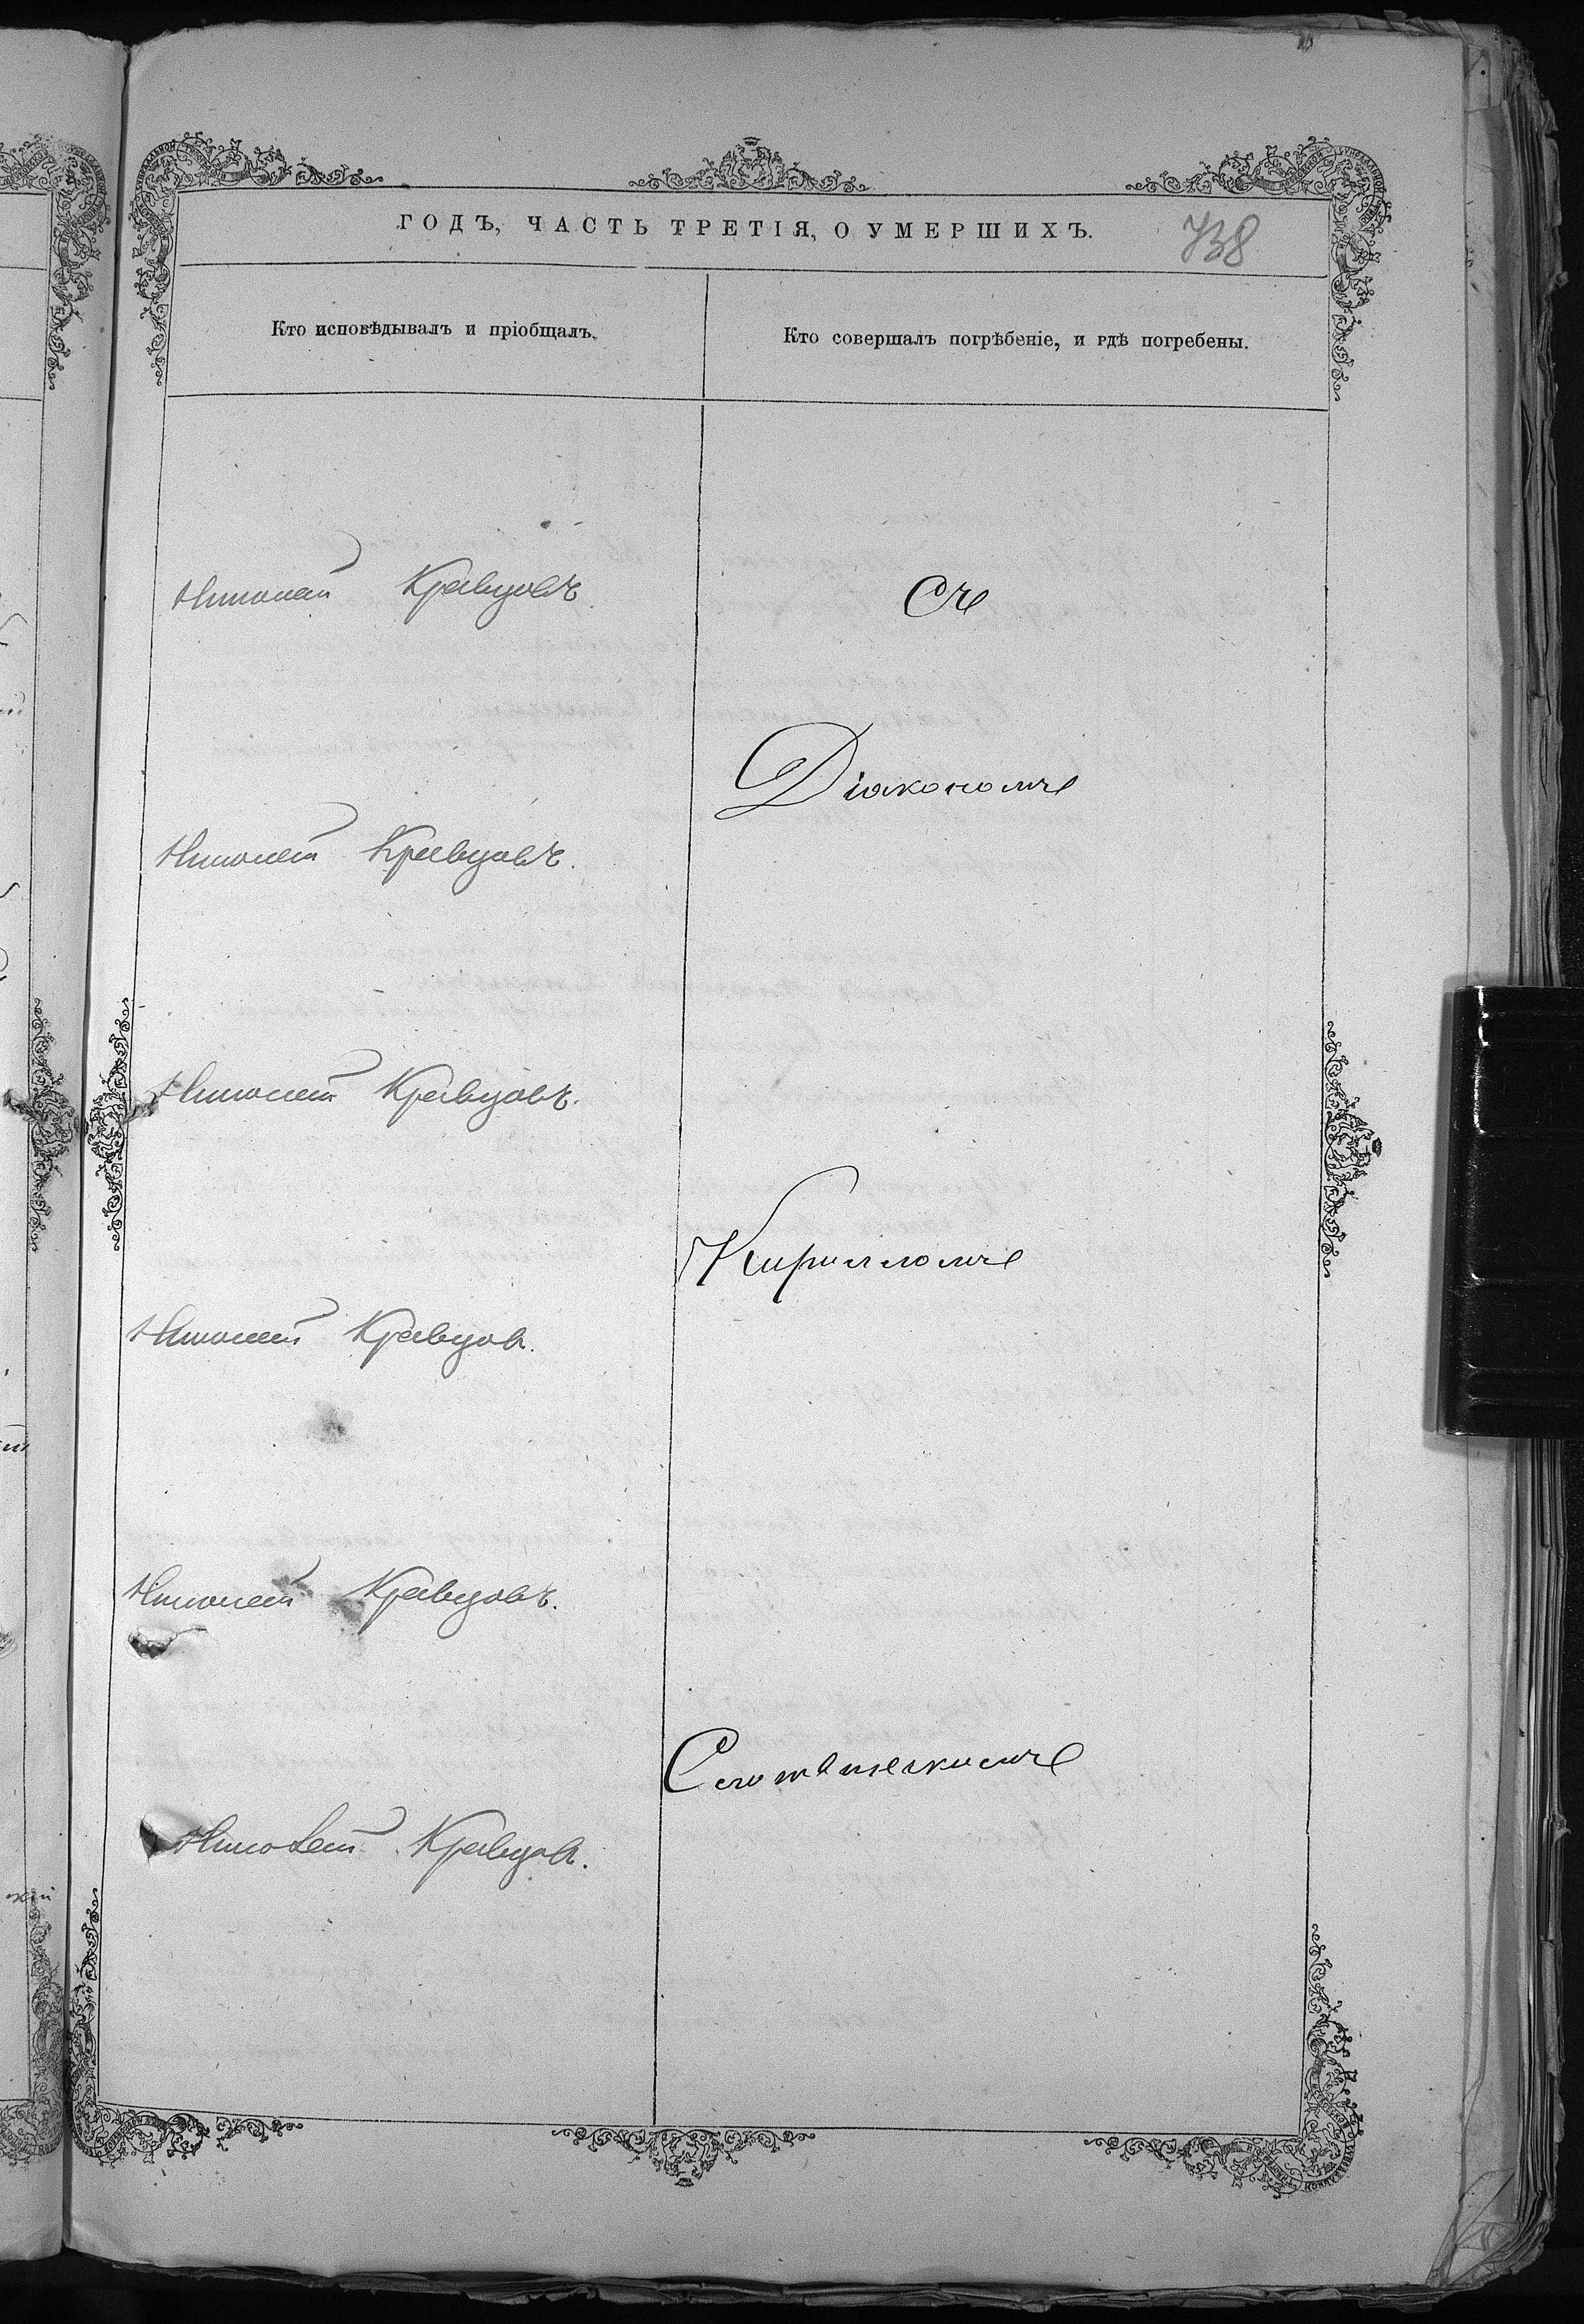 ГОДЪ, ЧАСТЬ ТРЕТІЯ, О УМЕРШИХЪ.
738
Кто исповѣдывалъ и пріобщалъ.
Кто совершалъ погрѣбеніе, и гдѣ погребены.
Николай Кравцовъ.
Съ
Діакономъ
Николай Кравцовъ.
Николай Кравцовъ.
Кирилломъ
Николай Кравцовъ.
Николай Кравцовъ.
Николай Кравцовъ.